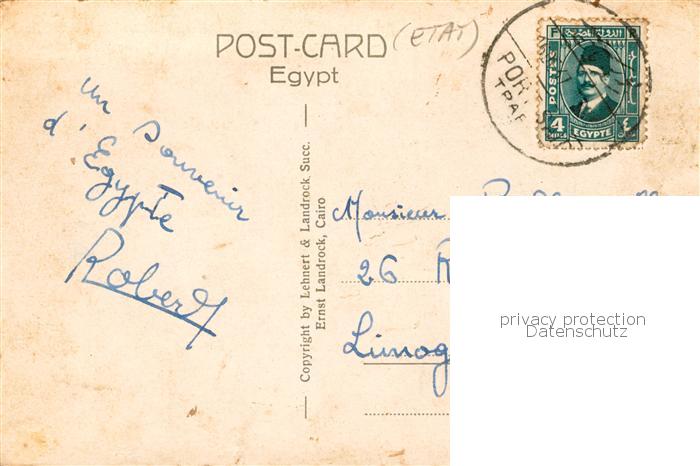 POST-CARD (ETAT)
Egypt
un souvenir
d'Egypte
Robert
Copyright by Lehnert & Landrock, Succ.
Ernst Landrock, Cairo
POSTES
4
EGYPTE
٤
POR
TRAF
Monsieur
26 R
Limog
privacy protection
Datenschutz